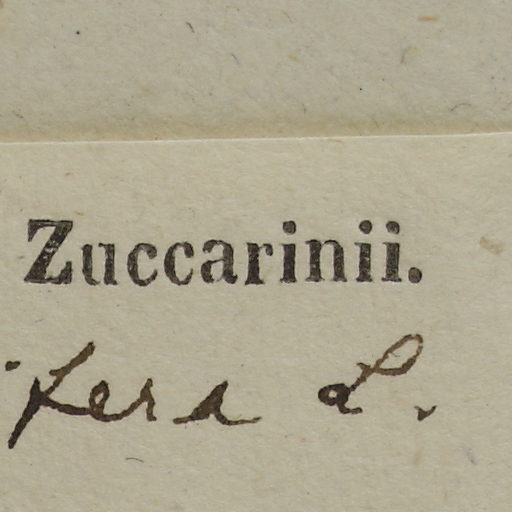 Zuccarinii.
ifera L.